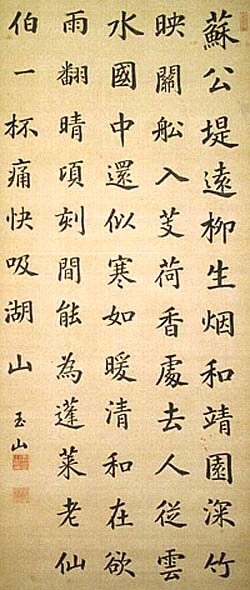 蘇公堤遠柳生烟和靖園深竹
映關舩入芰荷香處去人從雲
水國中還似寒如暖清和在欲
雨翻晴頃刻間能為蓬萊老仙
伯一杯痛快吸湖山
玉山